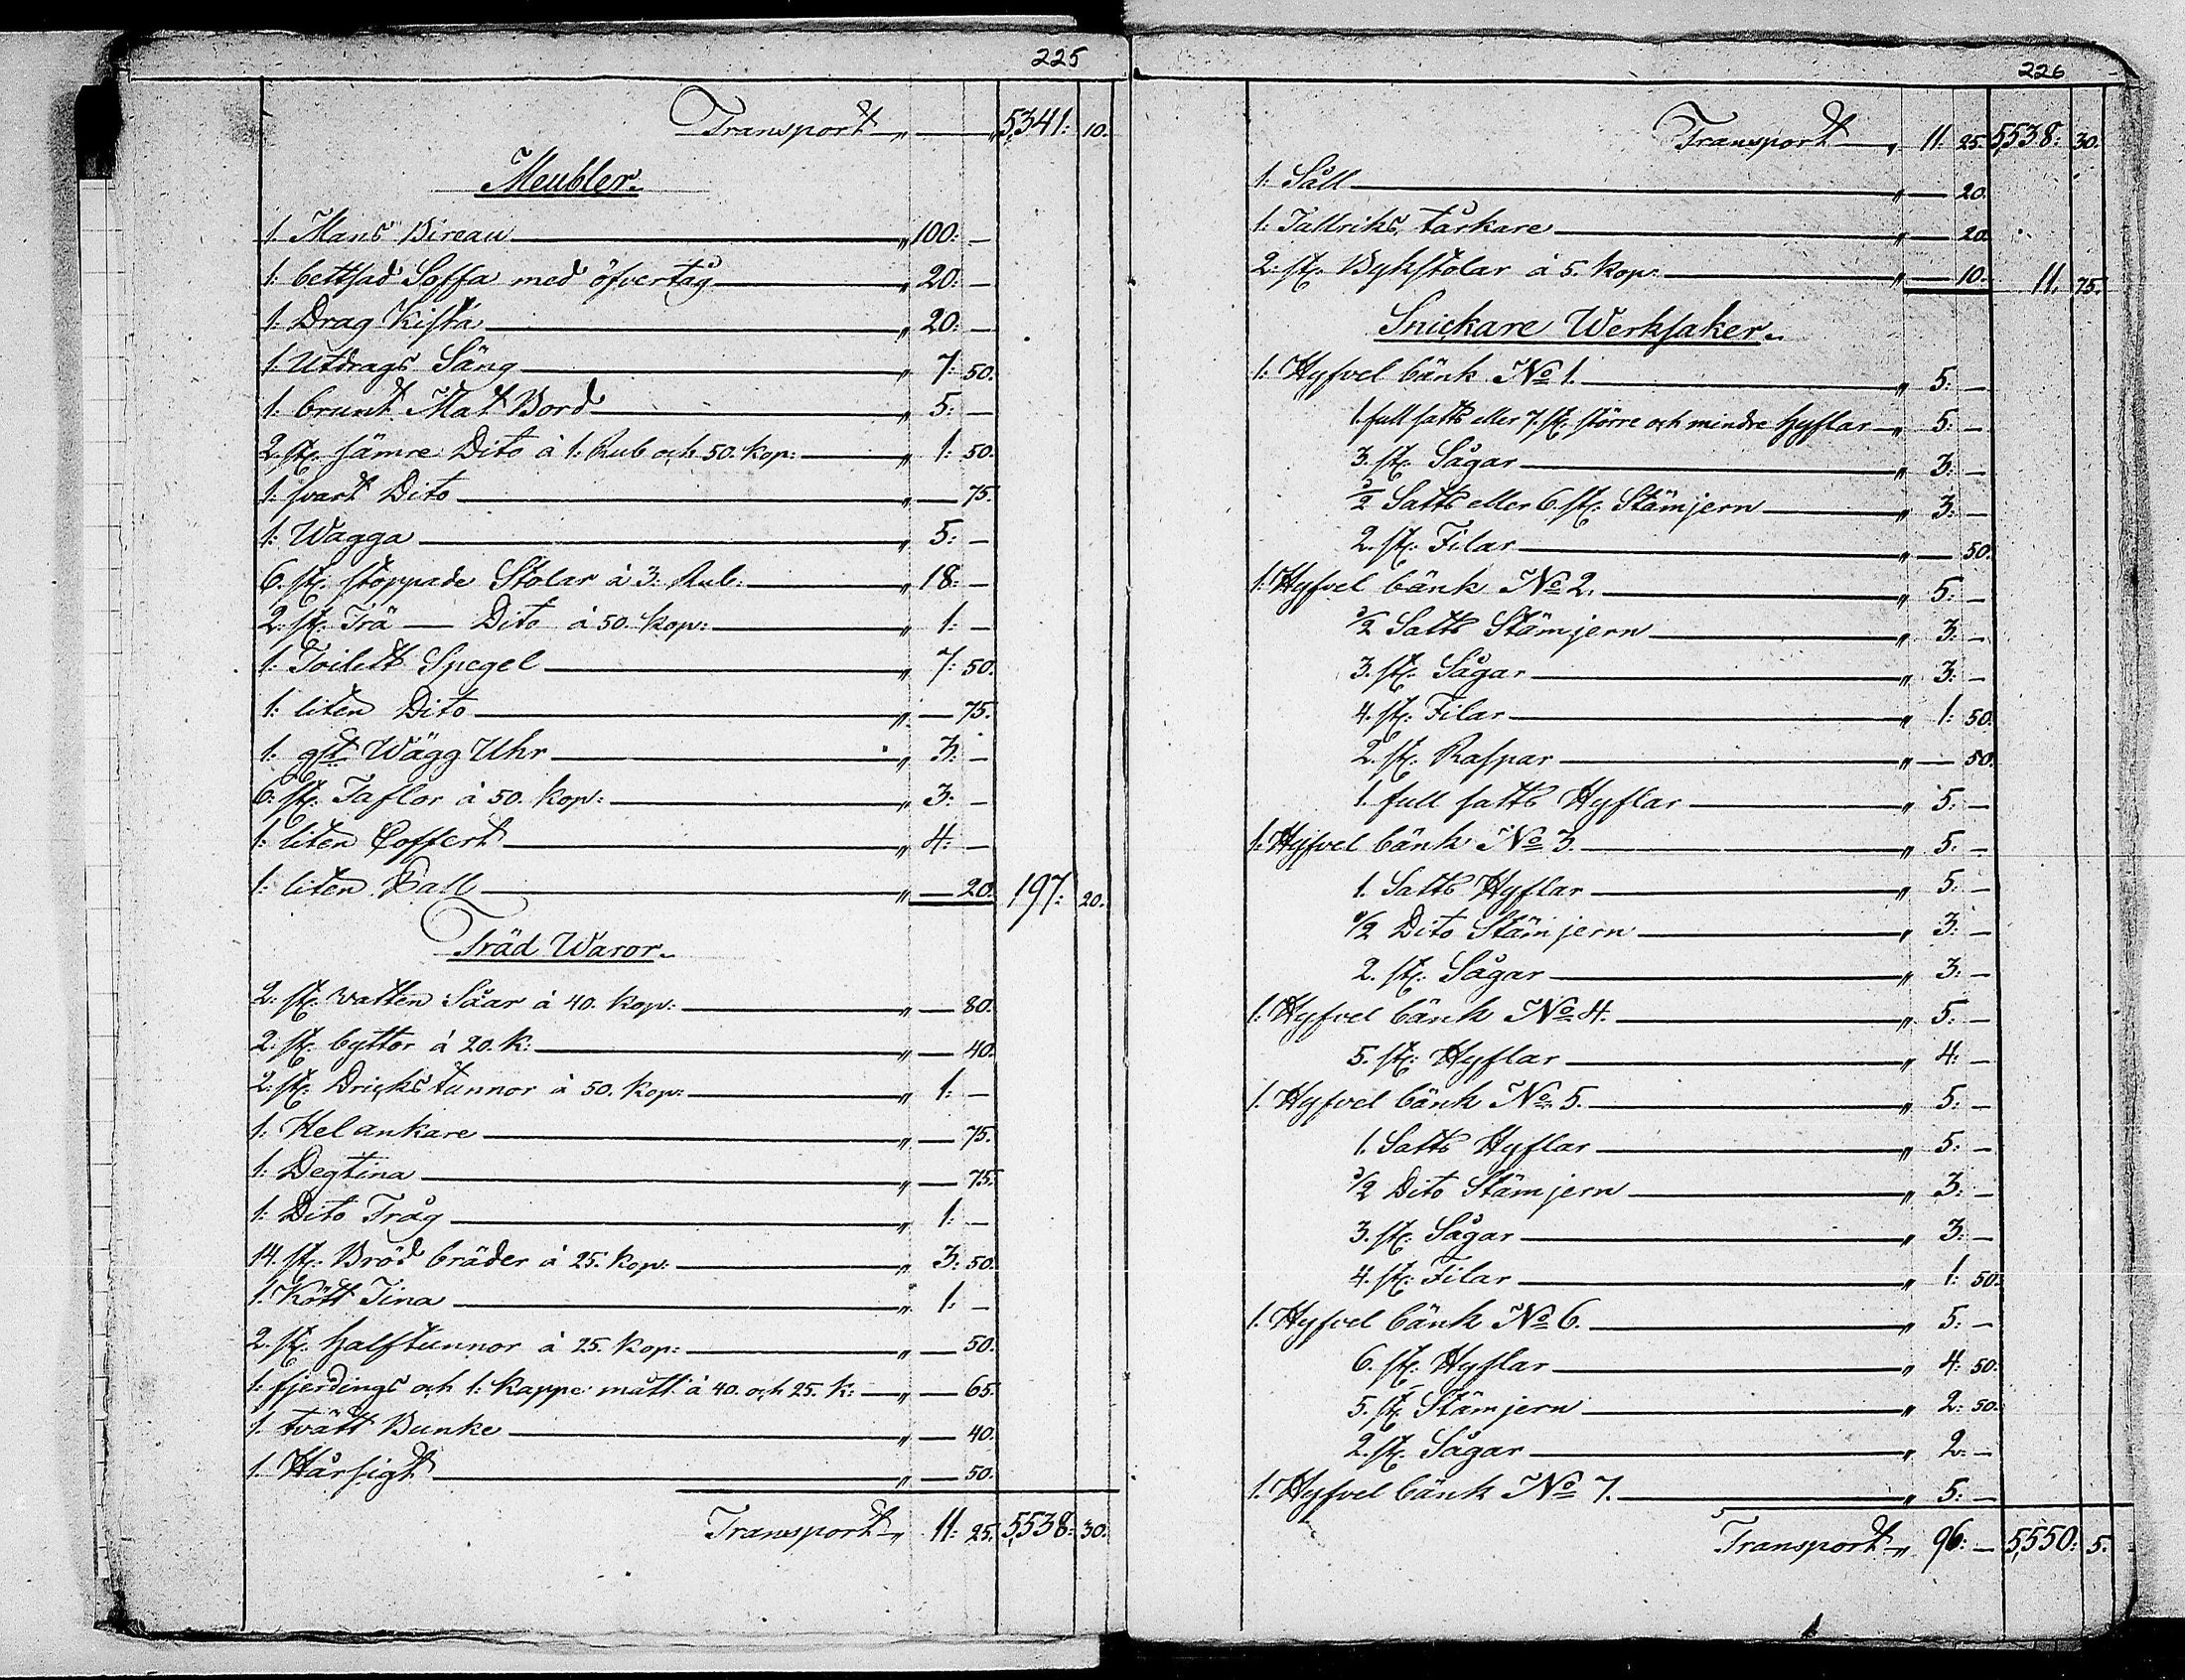 225
Transport " — " 5,341: 10.
Meubler.
1. Mans Bireau " 100: —
1: bettsad Soffa med öfvertåg " 20: —
1: Drag Kista " 20: —
1. Utdrags Säng " 7: 50.
1. brunt Mat Bord " 5: —
2. st: sämre Dito à 1. Rub och 50. kop: " 1: 50.
1: svart Dito " — 75.
1: Wagga " 5: —
6. st: stoppade Stolar à 3. Rub: " 18: —
2. st: Trä — Dito à 50. kop: " 1: —
1: Toilett Spegel " 7: 50.
1: liten Dito " — 75.
1: gt Wägg Uhr " 3: —
6: st: Taflor à 50. kop: " 3: —
1: liten Coffert " 4: —
1: liten Pall " — 20. 197: 20.
Träd Waror.
2: st: vatten Såar à 40. kop: " — 80.
2: st: byttor à 20. k: " — 40.
2: st: Dricks tunnor à 50. kop: " 1: —
1: Helankare " — 75.
1: Degtina " — 75.
1: Dito Tråg " 1: —
14. st: Bröd bräder à 25. kop: " 3: 50.
1. Kött Tina " 1: —
2. st: halftunnor à 25. kop: " — 50.
1: fjerdings och 1: kappe mått à 40. och 25. k: " — 65.
1. tvätt Bunke " — 40.
1. Hårsigt " — 50.
Transport " 11: 25. 5,538: 30.
226
Transport " 11: 25. 5,538: 30.
1: Såll " — 20.
1: Tallriks tårkare " — 20.
2: st: Bykstolar à 5. kop: " — 10. 11. 75.
Snickare Werksaker.
1. Hyfvel bänk No 1. " 5: —
1. full satts eller 7. st: större och mindre hyflar " 5: —
3. st: Sågar " 3: —
1/2 Satts eller 6. st: Stämjern " 3: —
2. st: Filar " — 50.
1: Hyfvel bänk No 2. " 5: —
1/2 Satts Stämjern " 3: —
3. st: Sågar " 3: —
4. st: Filar " 1: 50.
2. st: Raspar " — 50.
1. full satts Hyflar " 5: —
1: Hyfvel bänk No 3. " 5: —
1. Satts Hyflar " 5: —
1/2 Dito Stämjern " 3: —
2. st: Sågar " 3: —
1: Hyfvel bänk No 4. " 5: —
5. st: Hyflar " 4: —
1. Hyfvel bänk No 5. " 5: —
1. Satts Hyflar " 5: —
1/2 Dito Stämjern " 3: —
3. st: Sågar " 3: —
4. st: Filar " 1: 50.
1. Hyfvel bänk No 6. " 5: —
6. st: Hyflar " 4: 50.
5. st: Stämjern " 2: 50.
2. st: Sågar " 2: —
1. Hyfvel bänk No 7. " 5: —
Transport " 96: — 5,550: 5.